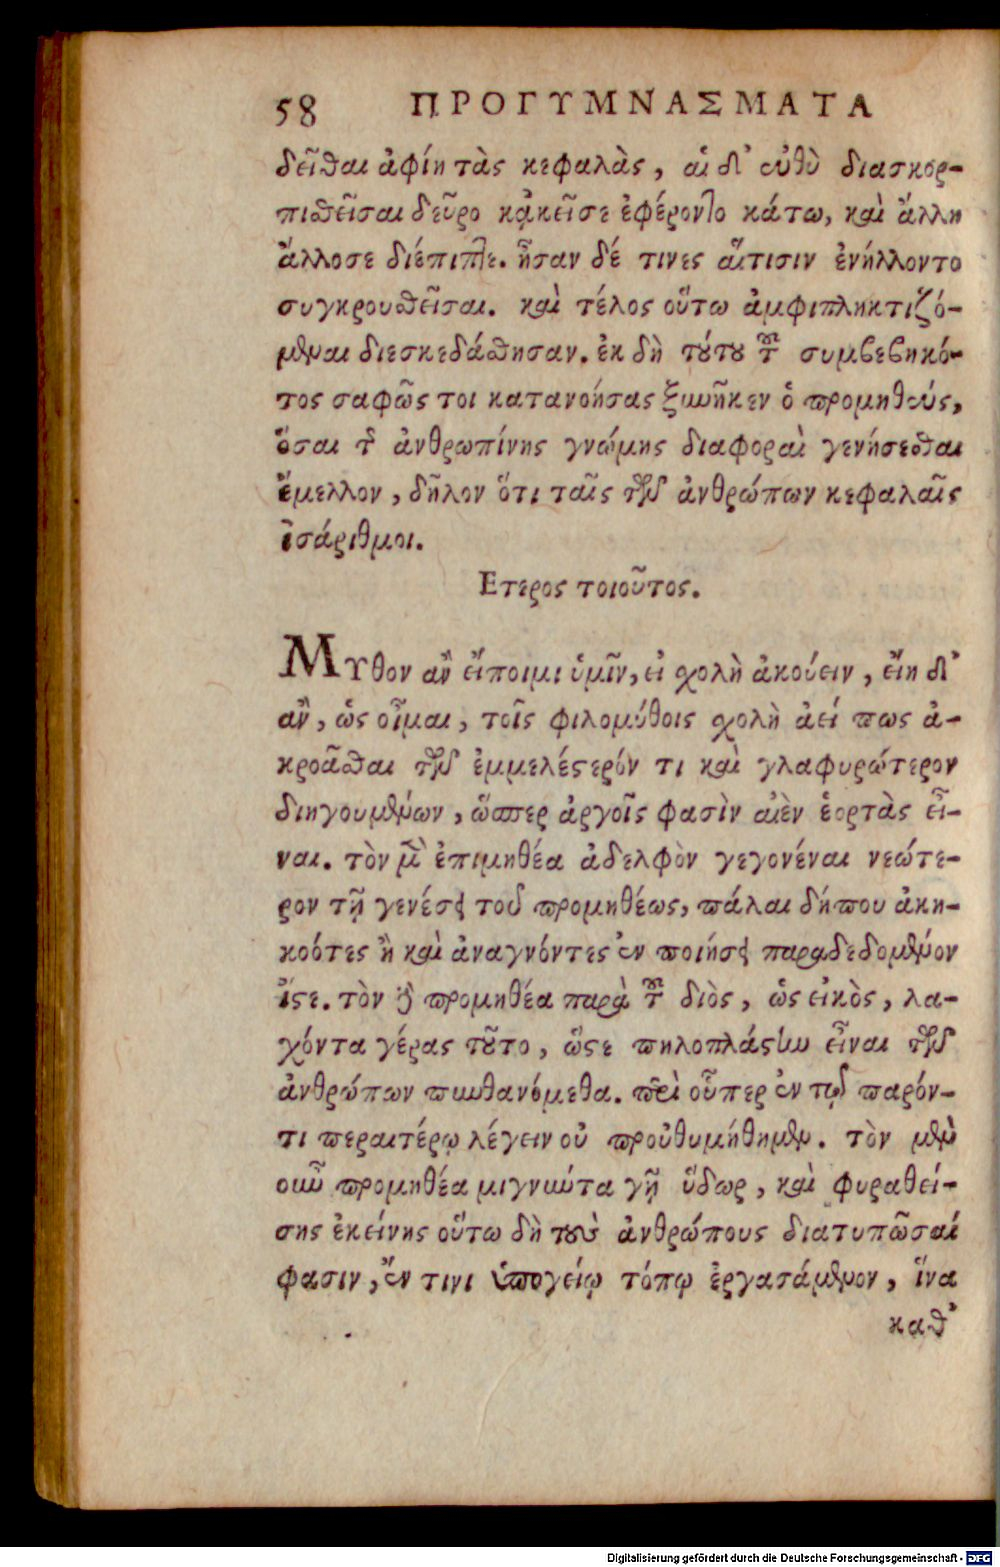 58 ΠΡΟΓΥΜΝΑΣΜΑΤΑ
δεῖσθαι ἀφίη τὰς κεφαλὰς, αἱ δ' εὐθὺ διασκορ-
πισθεῖσαι δεῦρο κἀκεῖσε ἐφέροντο κάτω, καὶ ἄλλη
ἄλλοσε διέπιπτε. ἦσαν δέ τινες αἵτισιν ἐνήλλοντο
συγκρουσθεῖσαι. καὶ τέλος οὕτω ἀμφιπληκτιζό-
μεναι διεσκεδάσθησαν. ἐκ δὴ τούτου τοῦ συμβεβηκό-
τος σαφῶς τοι κατανοήσας ξυνῆκεν ὁ προμηθεύς,
ὅσαι τῆς ἀνθρωπίνης γνώμης διαφοραὶ γενήσεσθαι
ἔμελλον, δῆλον ὅτι ταῖς τῶν ἀνθρώπων κεφαλαῖς
ἰσάριθμοι.
Ετερος τοιοῦτος.
ΜΥθον ἂν εἴποιμι ὑμῖν, εἰ σχολὴ ἀκούειν, εἴη δ'
ἂν, ὡς οἶμαι, τοῖς φιλομύθοις σχολὴ ἀεί πως ἀ-
κροᾶσθαι τῶν ἐμμελέστερόν τι καὶ γλαφυρώτερον
διηγουμένων, ὥσπερ ἀργοῖς φασὶν αἰὲν ἑορτὰς εἶ-
ναι. τὸν μὲν ἐπιμηθέα ἀδελφὸν γεγονέναι νεώτε-
ρον τῇ γενέσει τοῦ προμηθέως, πάλαι δήπου ἀκη-
κοότες ἢ καὶ ἀναγνόντες ἐν ποιήσει παραδεδομένον
ἴστε. τὸν δὲ προμηθέα παρὰ τοῦ διὸς, ὡς εἰκὸς, λα-
χόντα γέρας τοῦτο, ὥστε πηλοπλάστην εἶναι τῶν
ἀνθρώπων πυνθανόμεθα. περὶ οὗπερ ἐν τῷ παρόν-
τι περαιτέρῳ λέγειν οὐ προὐθυμήθημεν. τὸν μὲν
οὖν προμηθέα μιγνύντα γῇ ὕδωρ, καὶ φυραθεί-
σης ἐκείνης οὕτω δὴ τοὺς ἀνθρώπους διατυπῶσαί
φασιν, ἔν τινι ὑπογείῳ τόπῳ ἐργασάμενον, ἵνα
καθ'
Digitalisierung gefördert durch die Deutsche Forschungsgemeinschaft - DFG